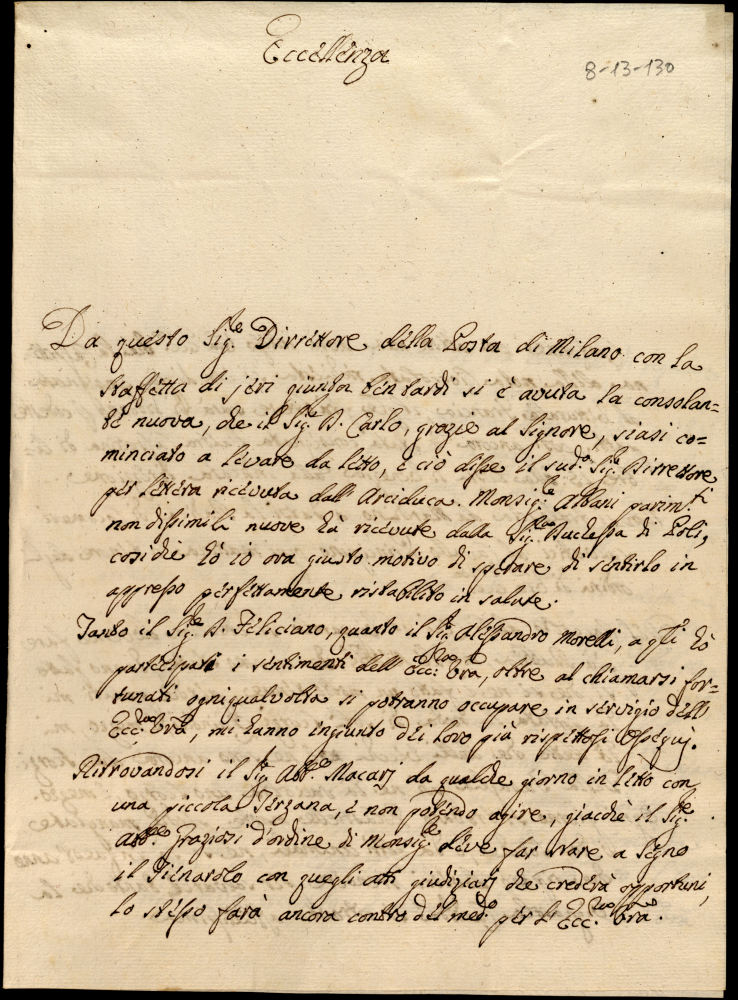 Eccellenza
8-13-130
Da questo Sig.e Dirrettore della Posta di Milano con la
Staffetta di jeri giunta ben tardi si è avuta la consolan=
te nuova, che il Sig.e D. Carlo, grazie al Signore, siasi co=
minciato a levare da letto, e ciò disse il sud.o Sig.e Dirrettore
per lettera ricevuta dall' Arciduca. Monsig.e Albani parim.ti
non dissimili nuove hà ricevute dalla Sig.ra Duchessa di Poli,
cosiche hò io ora giusto motivo di sperare di sentirlo in
appresso perfettamente ristabilito in salute.
Tanto il Sig.e D. Feliciano, quanto il Sig.e Alessandro Morelli, a q.li hò
partecipati i sentimenti dell' Ecc.za Vra, oltre al chiamarsi for=
tunati ogniqualvolta si potranno occupare in servigio dell'
Ecc.za Vra, mi hanno ingiunto dei loro più rispettosi Ossequj.
Ritrovandosi il Sig.e Abb.e Macarj da qualche giorno in letto con
una piccola Terzana, e non potendo agire, giachè il Sig.e
Abb.e Graziosi d'ordine di Monsig.e deve far stare a segno
il Fienarolo con quegli atti giudiziarj che crederà opportuni,
lo stesso farà ancora contro del med.o per l'Ecc.za Vra.